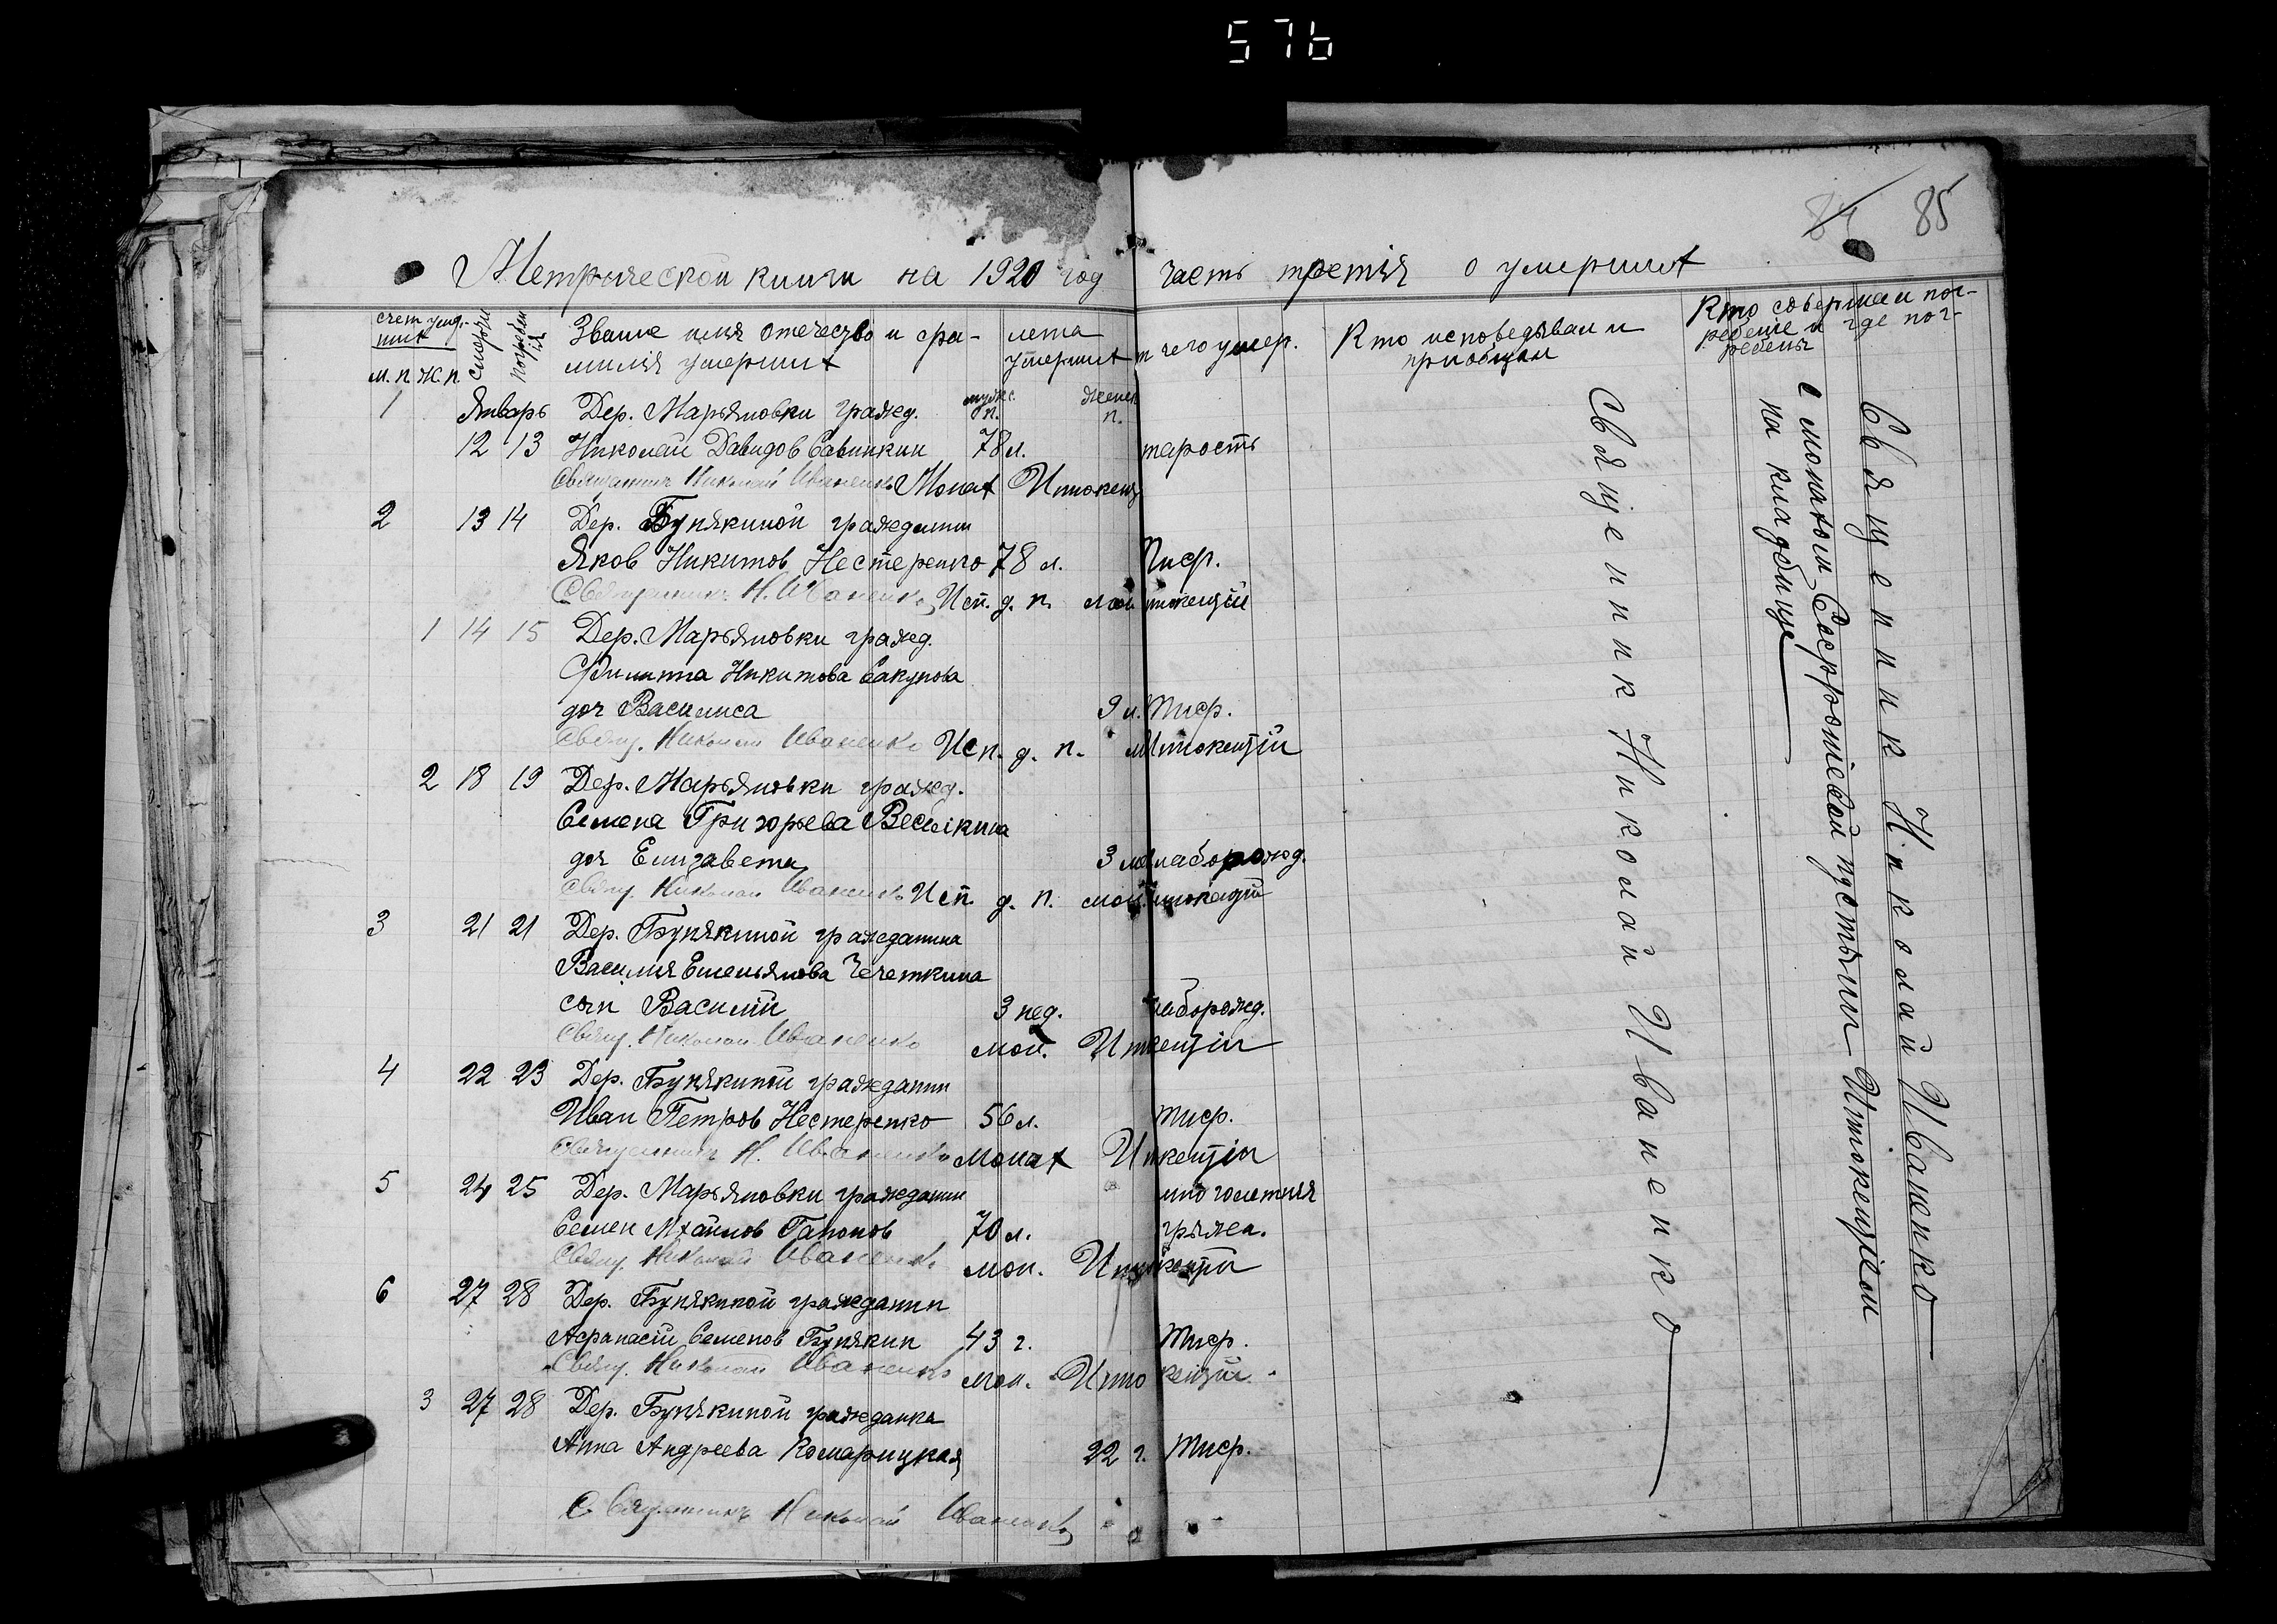 576
84 85
Метрической книги на 1920 год часть третія о умерших
счет умер-
ших
м. п. ж. п.
смерти
погребен
ія
Званіе имя отечество и фа-
милія умерших
лета
умерших
т чего умер.
Кто исповедывал и
приобщал
Кто совершал пог-
ребеніе и где пог-
ребены
1 Январь Дер. Марьяновки гражд. мужс. п. женск. п.
12 13 Николай Давидов Савинкин 78 л. тарость
Священник Николай Иваненко Монах Инокенц
2 13 14 Дер. Бунякиной гражданин
Яков Никитов Нестеренко 78 л. Тиф.
Священник Н. Иваненко Исп. д. п. мон. инокенцій
1 14 15 Дер. Марьяновки гражд.
Филиппа Никитова Сакунова
доч Василиса 9 л. Тиф.
Свящ. Николай Иваненко Исп. д. п. м Інокенцій
2 18 19 Дер. Марьяновки гражд.
Семена Григорьева Веселкина
доч Елизавета 3 слаборожд.
Свящ. Николай Иваненко Исп. д. п. мон. инокенцій
3 21 21 Дер. Бунякиной гражданина
Василия Емельянова Чечеткина
сын Василій 3 нед. слаборожд.
Свящ. Николай Иваненко мон. Инкенцій
4 22 23 Дер. Бунякиной гражданин
Иван Петров Нестеренко 56 л. тиф.
Священник Н. Иваненко монах Инкенцій
5 24 25 Дер. Марьяновки гражданин многолетняя
Семен Мхайлов Гапонов 70 л. грыжа.
Свящ. Николай Иваненко мон. Инокентій
6 27 28 Дер. Бунякиной гражданин
Афанасій Семенов Бунякин 43 г. Тиф.
Свящ. Николай Иваненко мон. Инокенцій.
3 27 28 Дер. Бунякиной гражданка
Анна Андреева Комарицкая 22 г. Тиф.
Священник Николай Иваненко
Священник Николай Иваненко
Священник Николай Иваненко
с монахом Софроніевой пустыни Инокенціем
на кладбище